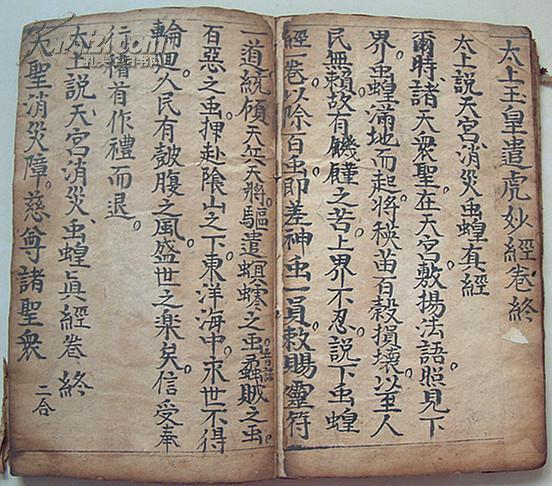 太上玉皇遣虎妙經卷終
太上説天宮消災虫蝗真經
爾時。諸天衆聖。在天宮敷揚法語。照見下
界。虫蝗滿地而起。將秧苗百穀損壞。以至人
民無賴。故有饑饉之苦。上界不忍。説下虫蝗
經卷。以除百虫。即差神虫一員。敕賜靈符
一道。統領天兵天將。驅遣蝗蝝之虫。蟊賊之虫。
百惡之虫。押赴陰山之下。東洋海中。永世不得
輪迴。人民有鼓腹之風。盛世之楽矣。信受奉
行。稽首作禮而退。
太上説天宮消災虫蝗真經卷終
大聖消災障。慈尊諸聖衆
二合